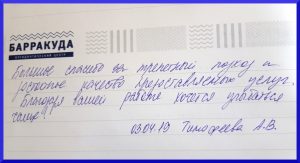 БАРРАКУДА
СТОМАТОЛОГИЧЕСКИЙ ЦЕНТР
Большое спасибо за трепетный подход и
высокое качество предоставляемых услуг.
Благодаря вашей работе хочется улыбаться
чаще!
03.04.19 Тимофеева А.В.